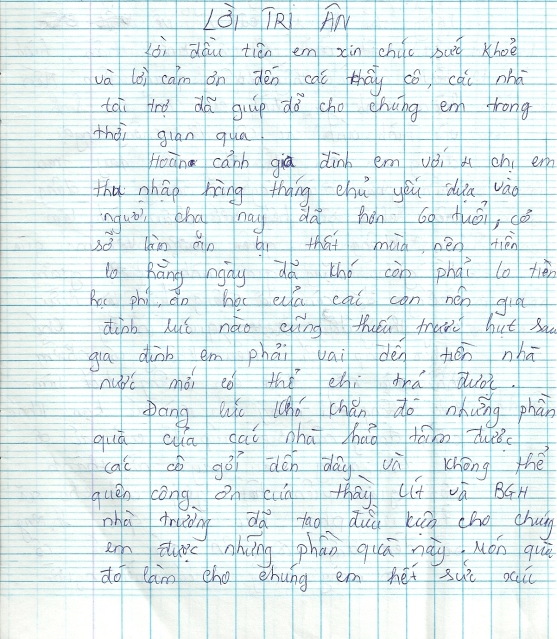 LỜI TRI ÂN
Lời đầu tiên em xin chúc sức khoẻ
và lời cảm ơn đến các thầy cô, các nhà
tài trợ đã giúp đỡ cho chúng em trong
thời gian qua.
Hoàn cảnh gia đình em với 4 chị em
thu nhập hàng tháng chủ yếu dựa vào
người cha nay đã hơn 60 tuổi, có
số làm ăn bị thất mùa nên tiền
lo hằng ngày đã khó còn phải lo tiền
học phí, ăn học của các con nên gia
đình lúc nào cũng thiếu trước hụt sau
gia đình em phải vai đến tiền nhà
nước mới có thể chi trả được.
Đang lúc khó khăn đó những phần
quà của các nhà hảo tâm được
các cô gởi đến đây và không thể
quên công ơn của thầy Út và BGH
nhà trường đã tạo điều kiện cho chúng
em được những phần quà này. Món quà
đó làm cho chúng em hết sức xúc